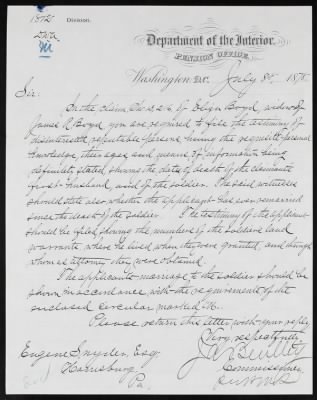 1812 Division.
Department of the Interior,
PENSION OFFICE,
Washington D.C. July 30, 1878
Sir:
In the claim of Boyd, widow of
James R Boyd you are required to file the testimony of
disinterested, reputable persons having the requisite personal
knowledge, their ages and means of information being
definitely stated, showing the dates of death of the claimants
first husband, and of the soldier. The said witnesses
should state also whether the applicant has ever remarried
since the death of the soldier. The testimony of the applicant
should be filed showing the numbers of the soldiers land
warrants, where he lived when they were granted, and through
whom as attorney they were obtained.
The applicants marriage to the soldier should be
shown in accordance with the requirements of the
enclosed circular marked
Please return this letter with your reply
Very respectfully,
J A Bentley
Commissioner
Eugene Snyder, Esq
Harrisburg
Pa.